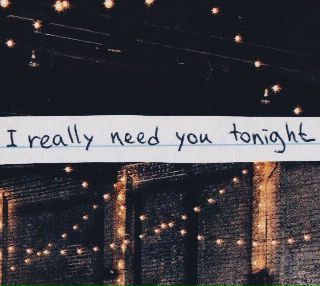 I really need you tonight